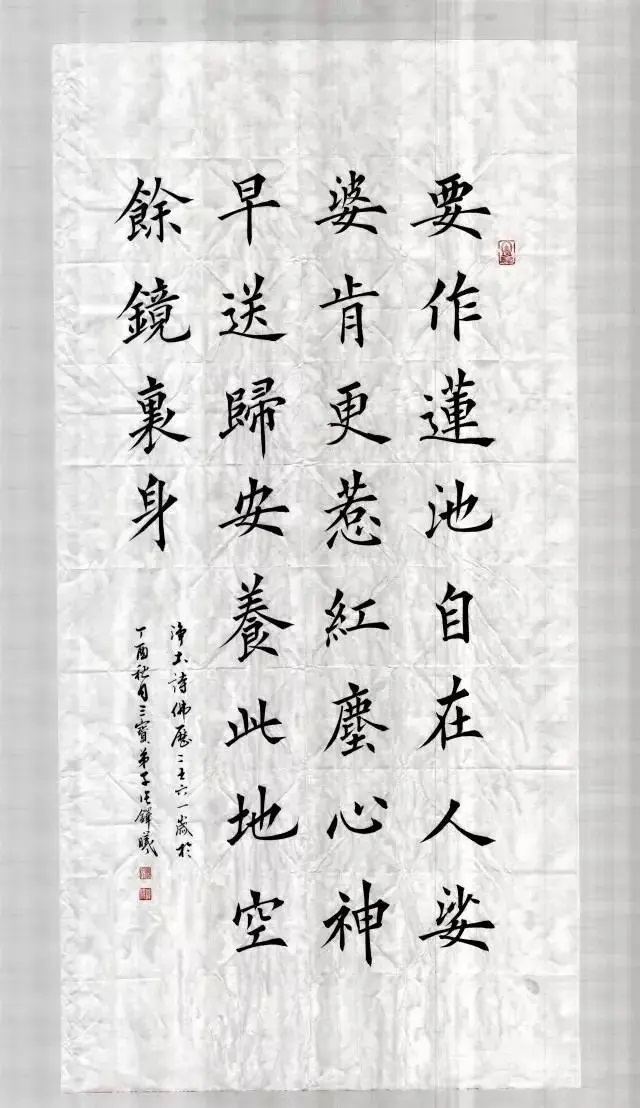 要作蓮池自在人娑
婆肯更惹紅塵心神
早送歸安養此地空
餘鏡裏身
淨土詩佛歷二五六一歲於
丁酉秋月三寶弟子鐸曦